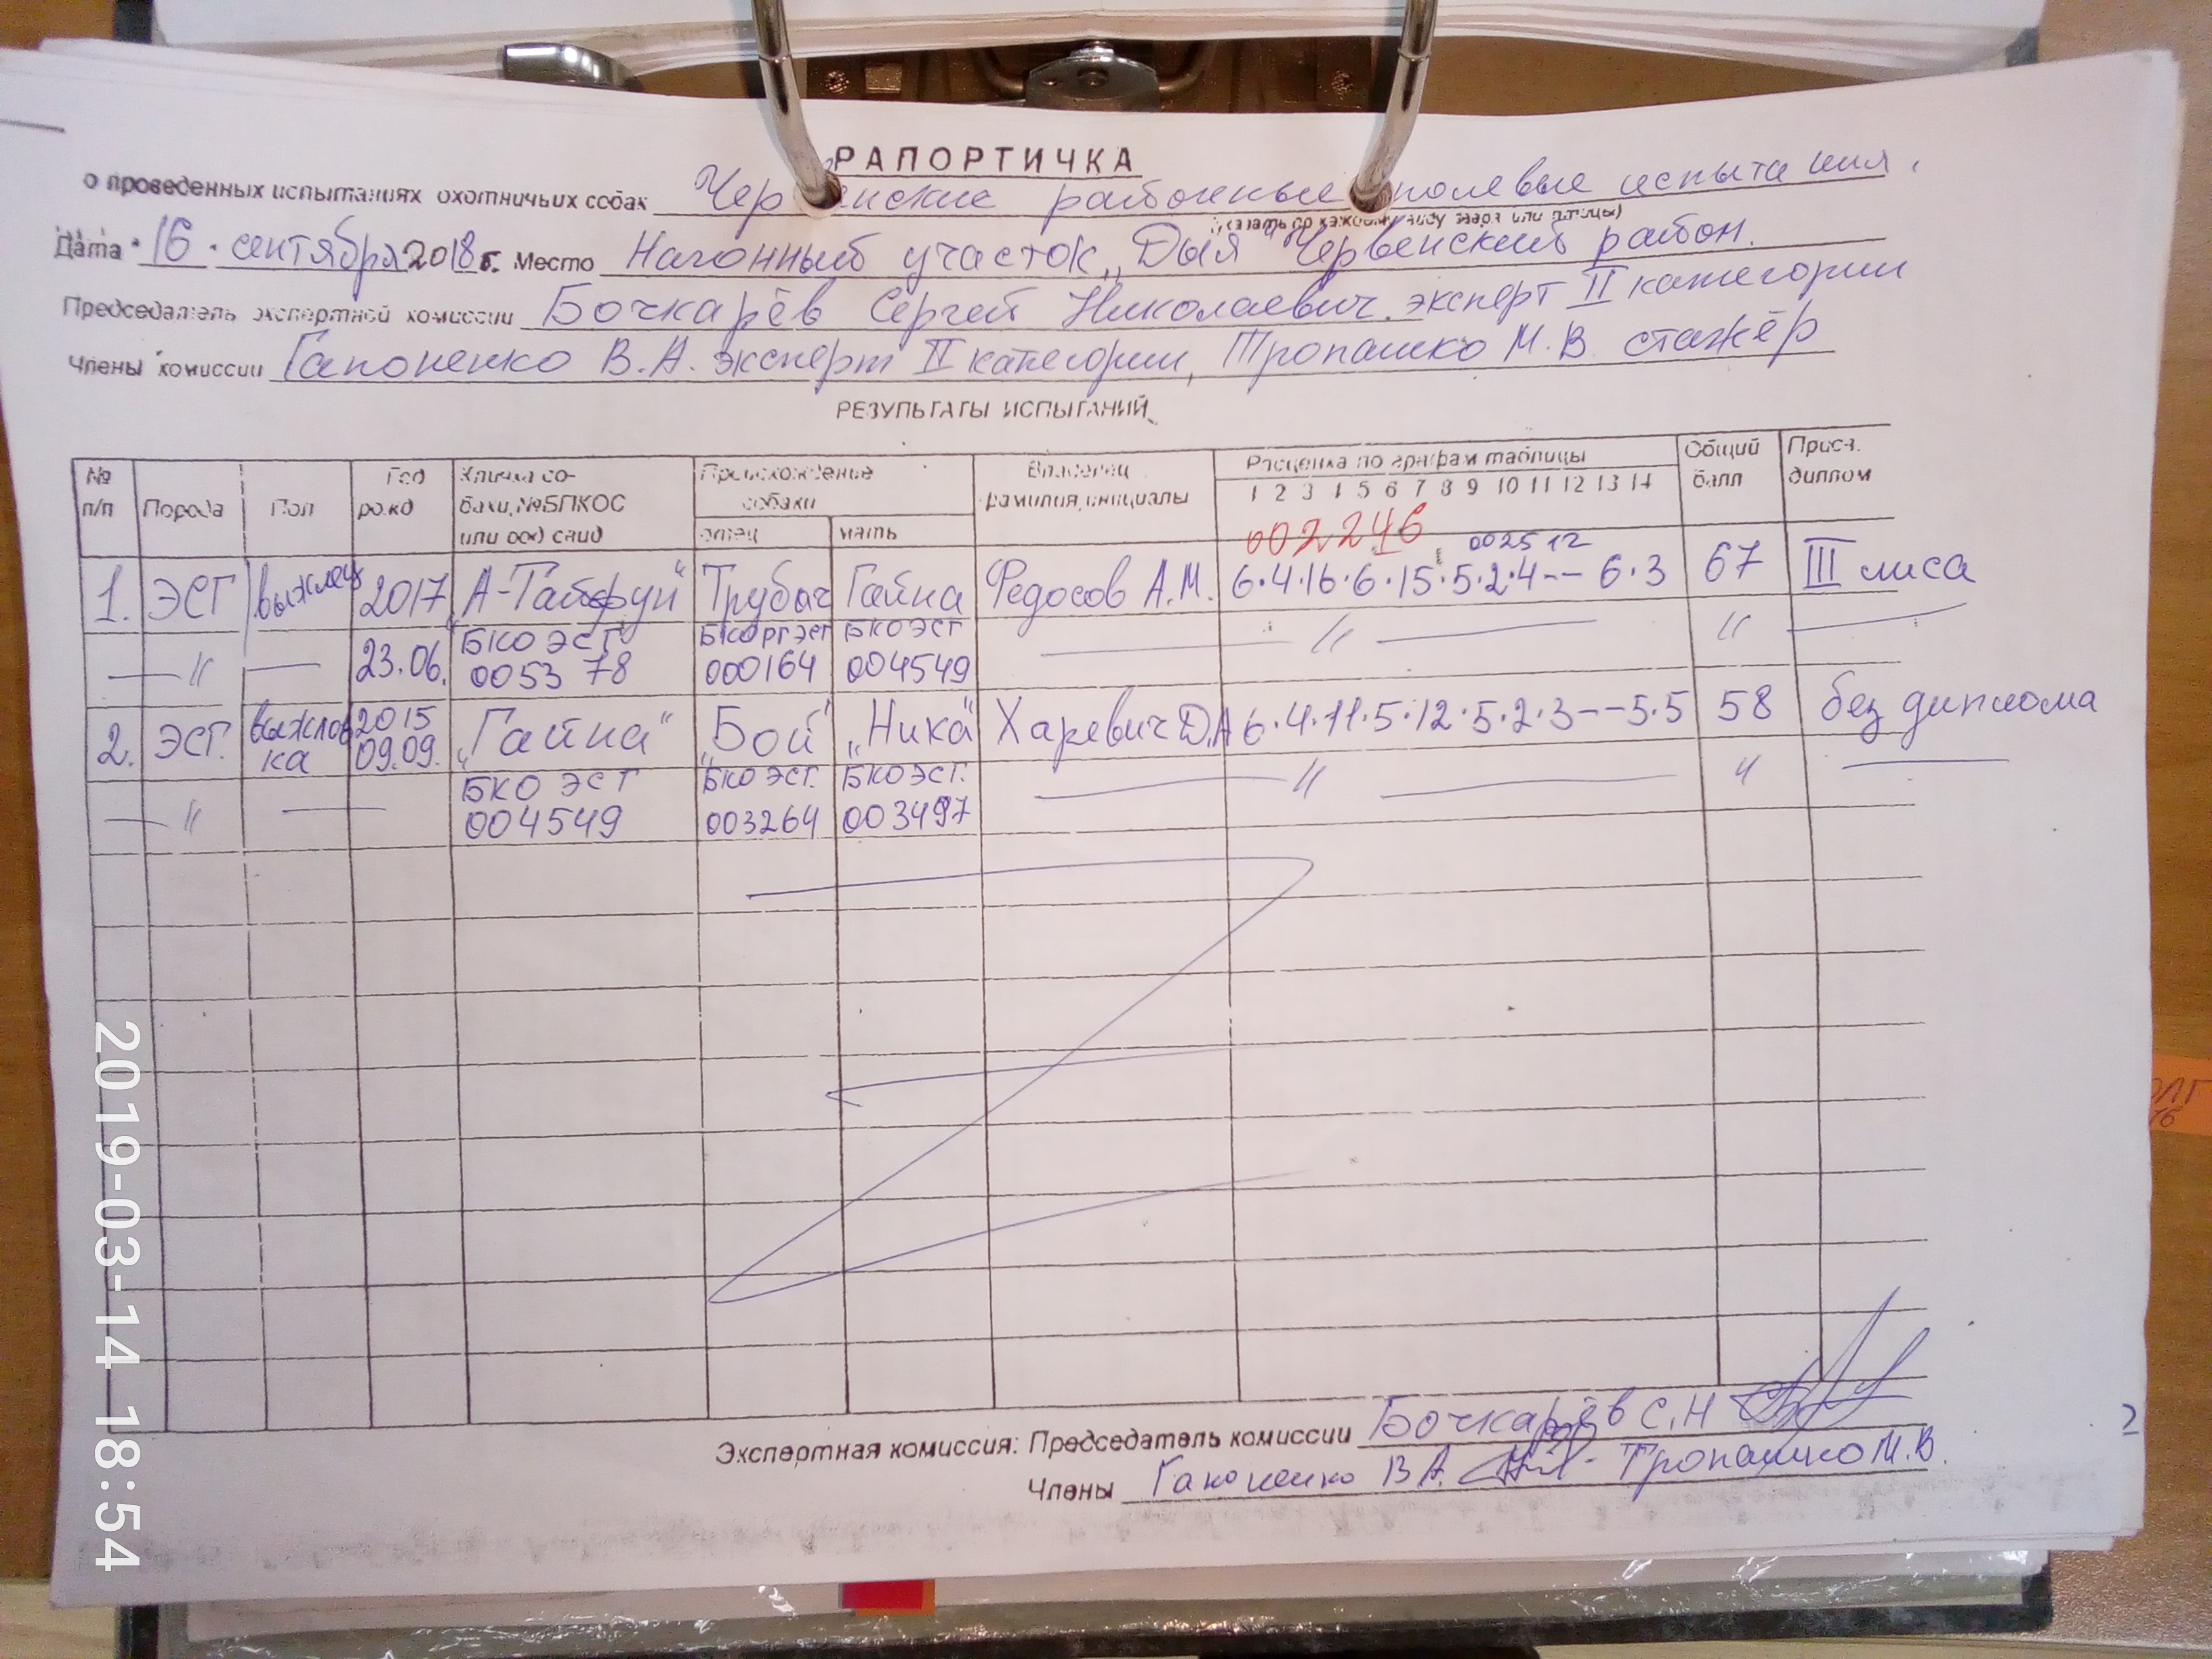 РАПОРТИЧКА
о проведенных испытаниях охотничьих собак Червенские районные полевые испытания.
(указать по каждому виду зверя или птицы)
Дата 16 сентября 2018 г. Место Нагонный участок "Дыя" Червенский район.
Председатель экспертной комиссии Бочкарёв Сергей Николаевич. эксперт II категории
Члены комиссии Гапоненко В.А. эксперт II категории, Тропашко М.В. стажёр
РЕЗУЛЬТАТЫ ИСПЫТАНИЙ
№ п/п Порода Пол Год рожд Кличка собаки, №БПКОС или охд свид Происхождение собаки отец мать Владелец фамилия, инициалы Расценка по графам таблицы 1 2 3 4 5 6 7 8 9 10 11 12 13 14 Общий балл Присв. диплом
002246 002512
1. ЭСГ выжлец 2017 "А-Тайфун" Трубач Гайна Федосов А.М. 6·4·16·6·15·5·2·4-- 6·3 67 III лиса
— " — 23.06. БКО ЭСГ 0053 78 БКОРГЭСГ 000164 БКО ЭСГ 004549 — " — " —
2. ЭСГ. выжловка 2015 09.09. "Гайна" "Бой" "Ника" Харевич Д.А 6·4·11·5·12·5·2·3--5·5 58 без диплома
— " — БКО ЭСГ 004549 БКО ЭСГ. 003264 БКО ЭСГ. 003497 — " — " —
Экспертная комиссия: Председатель комиссии Бочкарёв С.Н
Члены Гапоненко В А. Тропашко М.В.
2
2019-03-14 18:54